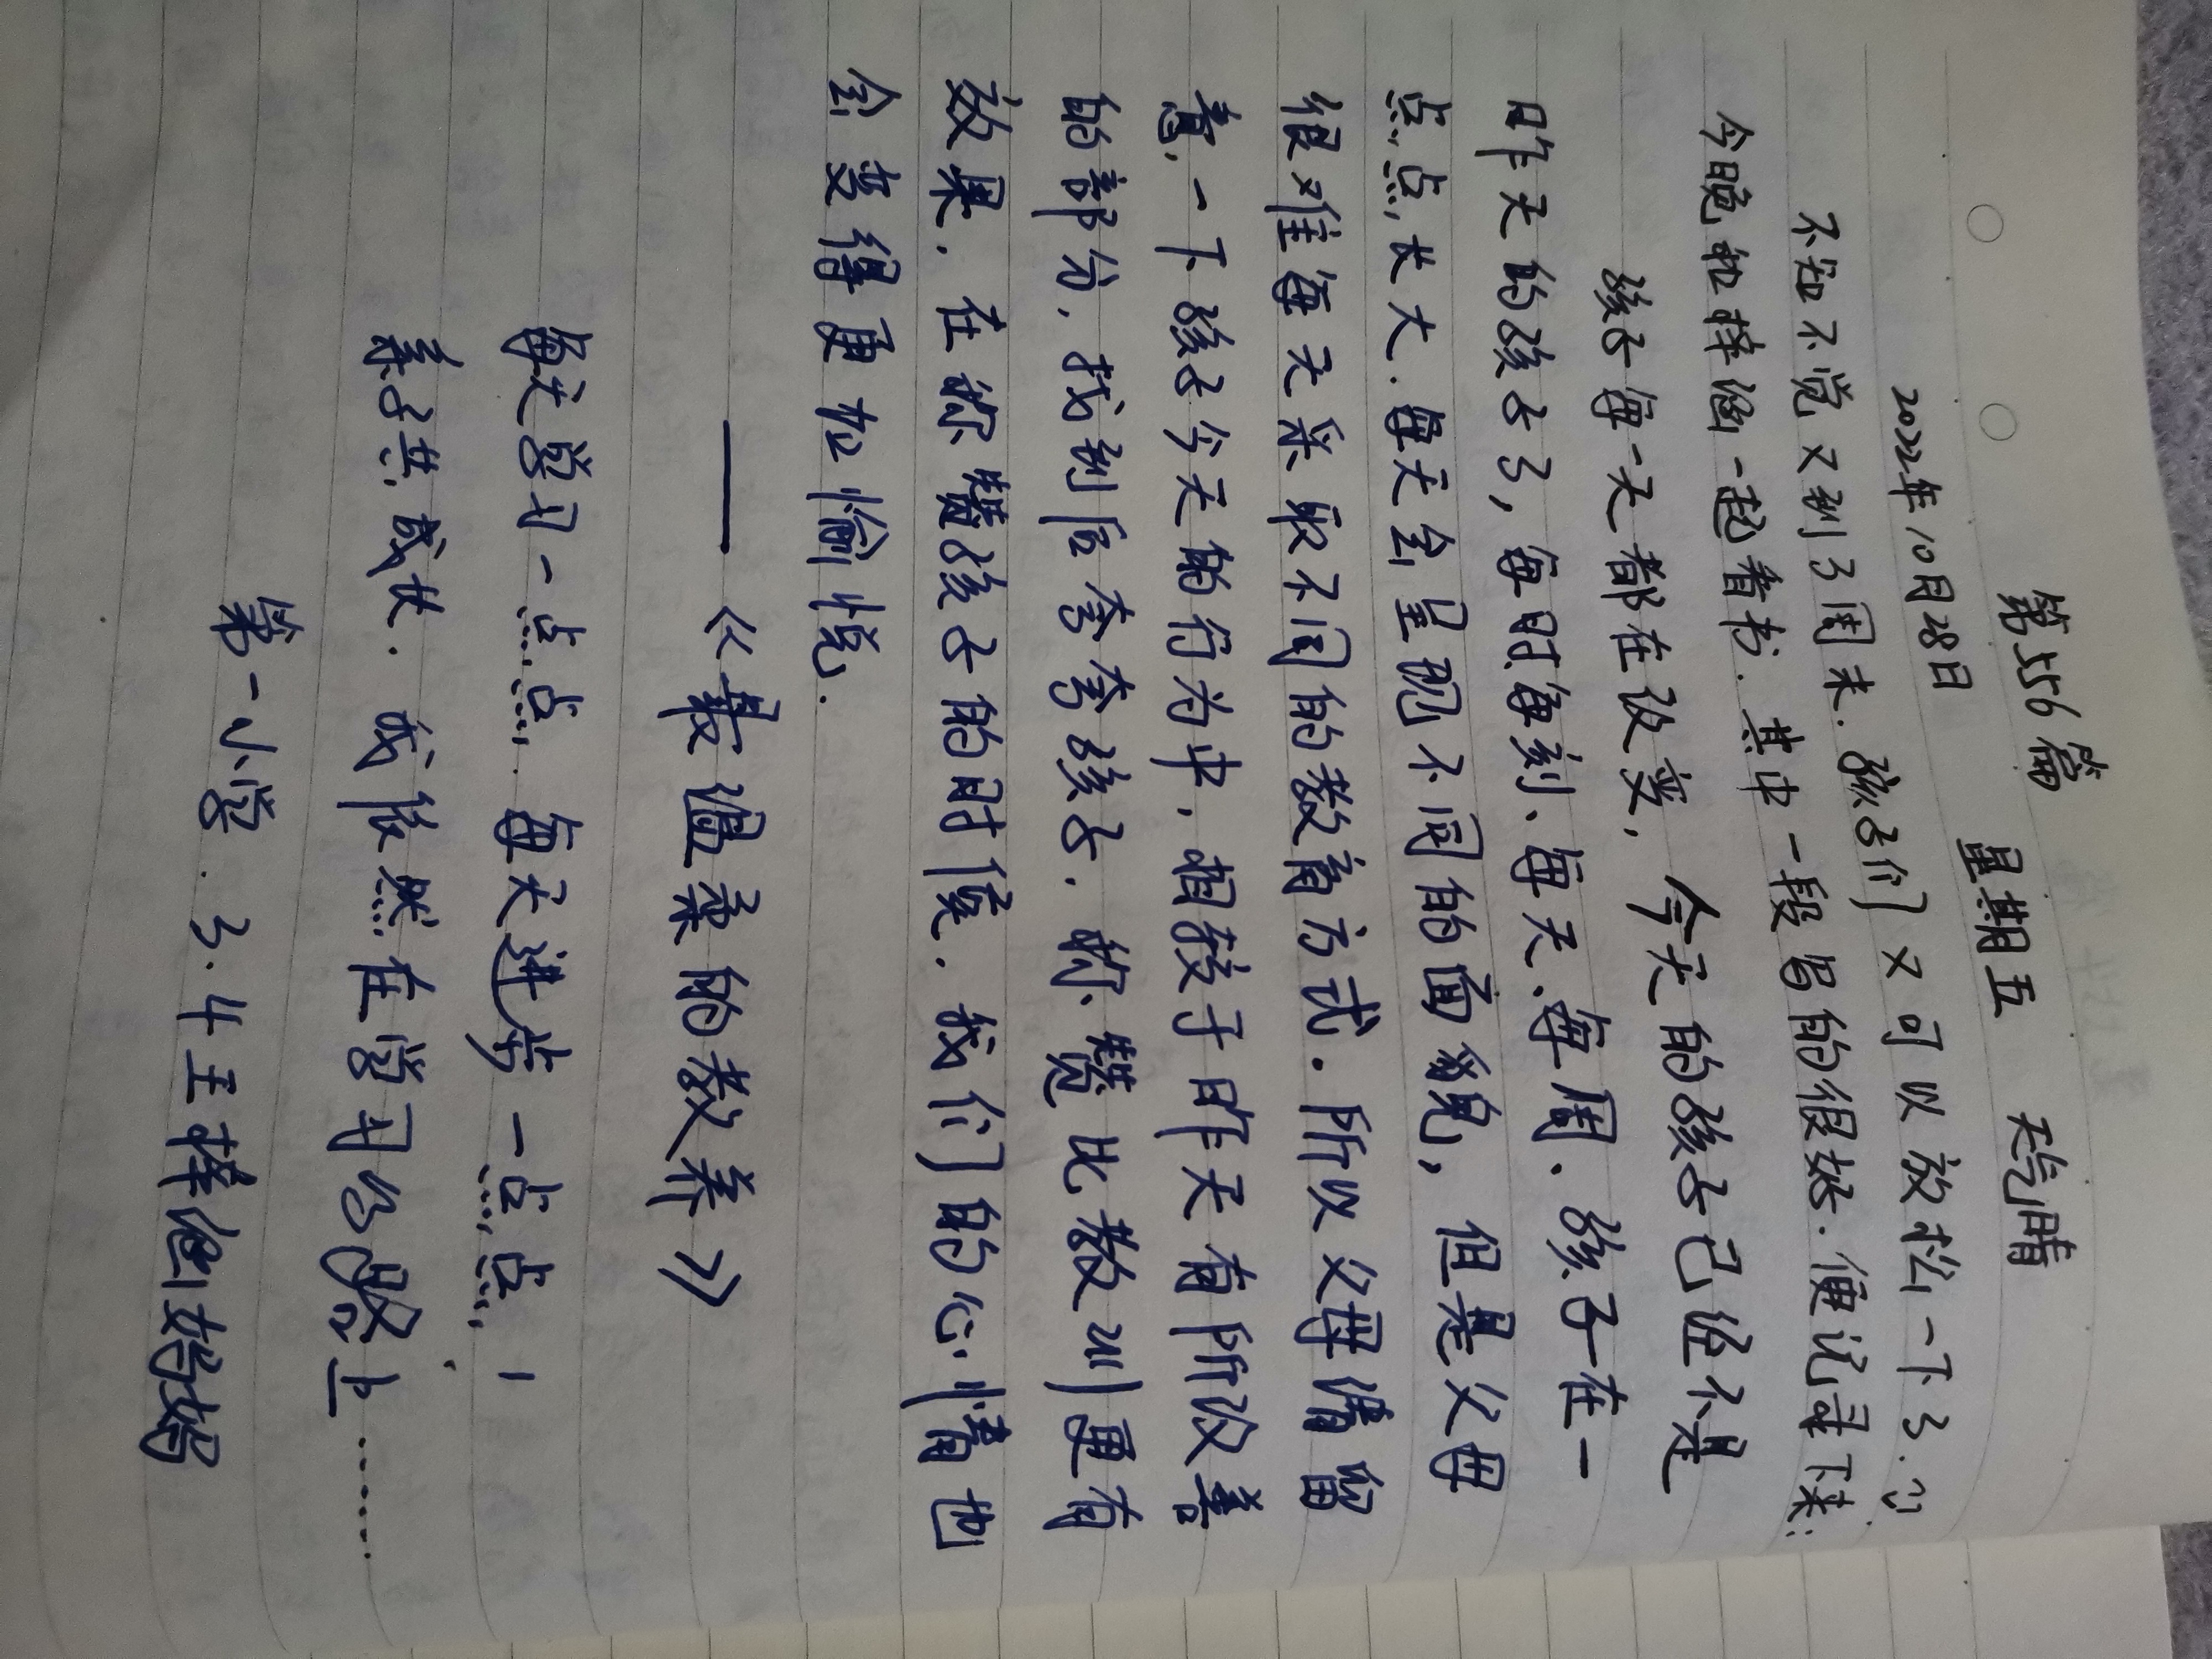 第556篇
2022年10月28日 星期五 天气晴
不知不觉又到了周末.孩子们又可以放松一下了.
今晚和梓涵一起看书.其中一段写的很好.便记录下来:
孩子每一天都在改变,今天的孩子已经不是
昨天的孩子了,每时每刻、每天、每周、孩子在一
点点长大.每天会呈现不同的面貌,但是父母
很难每天采取不同的教育方式.所以父母请留
意.一下孩子今天的行为中,相较于昨天有所改善
的部分.找到后夸夸孩子.称赞比教训更有
效果.在称赞孩子的时候.我们的心情也
会变得更松愉悦.
——《最温柔的教养》
每天学习一点点.每天进步一点点,
亲子共成长.我依然在学习的路上……
第一小学.3.4王梓涵妈妈